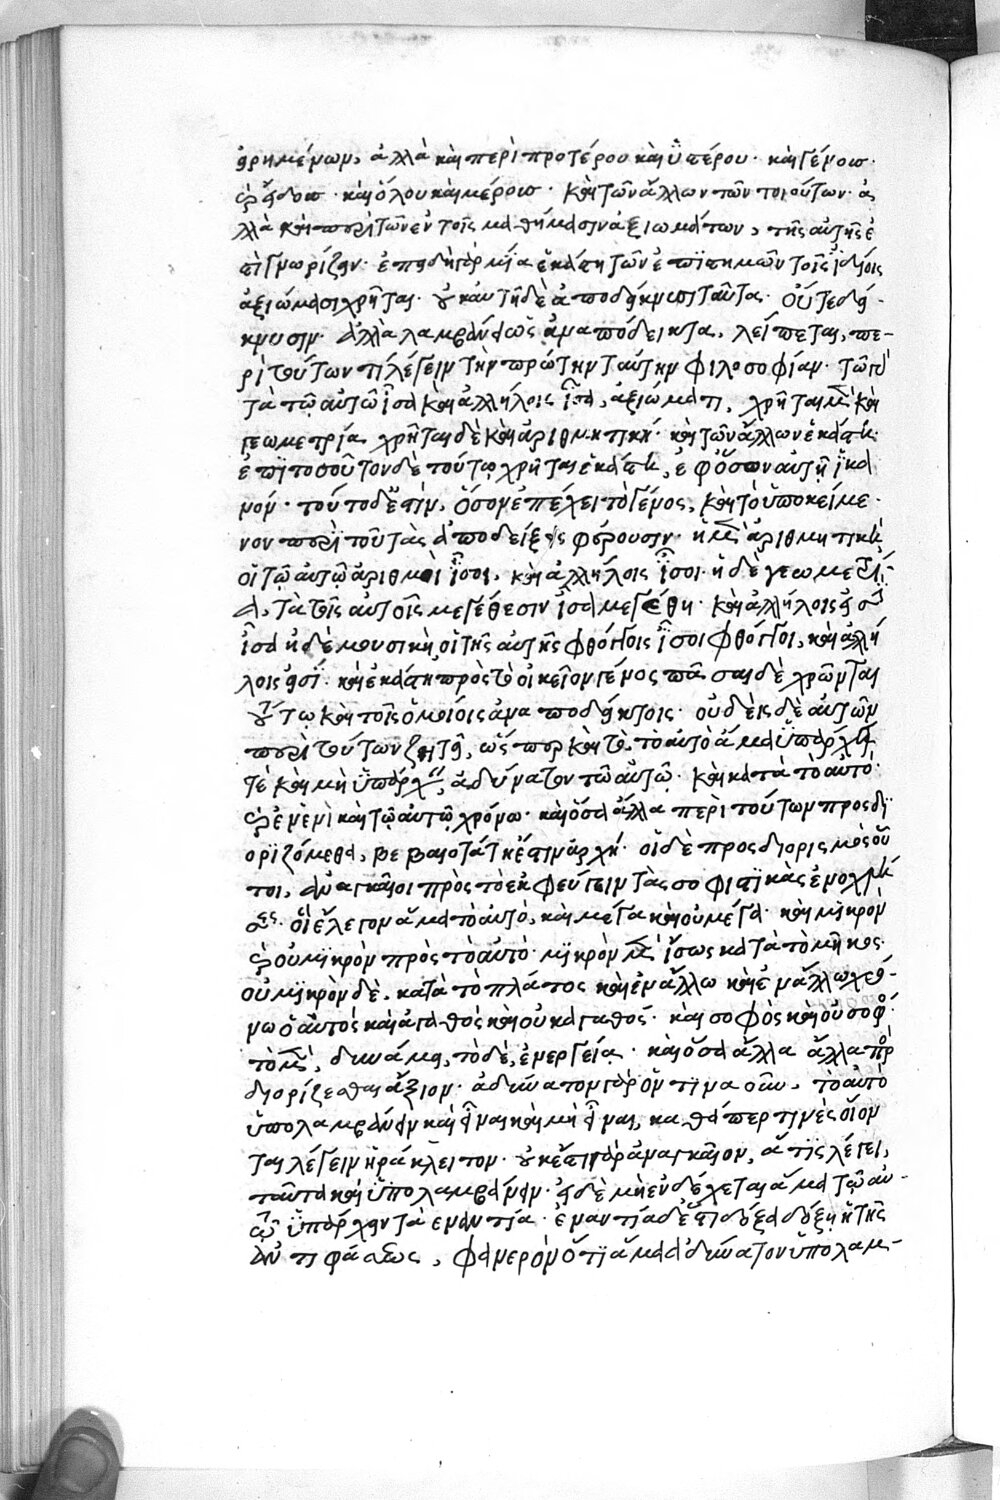 ἐρημένων, ἀλλὰ καὶ περὶ προτέρου καὶ ὑστέρου· καὶ γένους·
καὶ εἴδους· καὶ ὅλου καὶ μέρους· καὶ τῶν ἄλλων τῶν τοιούτων· ἀ
λλὰ καὶ περὶ τῶν ἐν τοῖς μαθήμασιν ἀξιωμάτων, τῆς αὐτῆς ἐ
στὶ γνωρίζειν· ἐπειδὴ γὰρ μία ἑκάστη τῶν ἐπιστημῶν τοῖς ἰδίοις
ἀξιώμασι χρῆται· οὐκ αὐτὴ δὲ ἀποδείκνυσι ταῦτα· οὔτε δεί-
κνυσιν· ἀλλὰ λαμβάνει ὡς ἀναπόδεικτα, λείπεται, πε-
ρὶ τούτων τι λέγειν τὴν πρώτην ταύτην φιλοσοφίαν· τῷ γὰρ
τὰ τῷ αὐτῷ ἴσα καὶ ἀλλήλοις ἴσα, ἀξιώματι, χρῆται μὲν καὶ
γεωμετρία χρῆται δὲ καὶ ἀριθμητική· καὶ τῶν ἄλλων ἑκάστη·
ἐπὶ τοσοῦτον δὲ τούτῳ χρῆται ἑκάστη, ἐφ' ὅσον αὐτῇ ἱκα
νόν· τοῦτο δ' ἐστὶν, ὅσον ἐπέχει τὸ γένος, καὶ τὸ ὑποκείμε·
νον περὶ τοῦ τὰς ἀποδείξεις φέρουσιν· ἡ μὲν ἀριθμητικὴ
οἱ τῷ αὐτῷ ἀριθμοὶ ἴσοι, καὶ ἀλλήλοις ἴσοι· ἡ δὲ γεωμετρί-
α, τὰ τοῖς αὐτοῖς μεγέθεσιν ἴσα μεγέθη· καὶ ἀλλήλοις εἰσὶν
ἴσα ἡ δὲ μουσικὴ οἱ τῆς αὐτῆς φθόγγοις ἴσοι φθόγγοι, καὶ ἀλλή
λοις εἰσί· καὶ ἑκάστη πρὸς τὸ οἰκεῖον γένος πᾶσαι δὲ χρῶνται
τούτῳ καὶ τοῖς ὁμοίοις ἀναποδείκτοις· οὐδεὶς δὲ αὐτῶν
περὶ τούτων ζητεῖ, ὥσπερ καὶ τὸ, τὸ αὐτὸ ἅμα ὑπάρχειν
τὲ καὶ μὴ ὑπάρχειν, ἀδύνατον τῷ αὐτῷ· καὶ κατὰ τὸ αὐτό·
καὶ ἐν ἑνὶ καὶ τῷ αὐτῷ χρόνῳ· καὶ ὅσα ἄλλα περὶ τούτων προσδι
οριζόμεθα, βεβαιοτάτη ἐστὶν ἀρχή· οἱ δὲ προσδιορισμοὶ οὗ
τοι, ἀναγκαῖοι πρὸς τὸ ἐκφεύγειν τὰς σοφιστικὰς ἐνοχλή
σεις· οἳ ἔλεγον ἅμα τὸ αὐτὸ, καὶ μέγα καὶ οὐ μέγα· καὶ μικρὸν
καὶ οὐ μικρὸν πρὸς τὸ αὐτό· μικρὸν μὲν ἴσως κατὰ τὸ μῆκος·
οὐ μικρὸν δὲ, κατὰ τὸ πλάτος καὶ ἐν ἄλλω καὶ ἐν ἄλλω χρό-
νω ὁ αὐτὸς καὶ ἀγαθὸς καὶ οὐκ ἀγαθός· καὶ σοφὸς καὶ οὐ σοφός·
τὸ μὲν, δυνάμει, τὸ δὲ, ἐνεργείᾳ· καὶ ὅσα ἄλλα ἄλλα προσ
διορίζεσθαι ἄξιον· ἀδύνατον γὰρ ὅν τινα οῦν, τὸ αὐτὸ
ὑπολαμβάνειν καὶ εἶναι καὶ μὴ εἶναι, καθάπερ τινὲς οἴον
ται λέγειν ἡράκλειτον· οὐκ ἔστι γὰρ ἀναγκαῖον, ἅ τις λέγει,
ταῦτα καὶ ὑπολαμβάνειν· εἰ δὲ μὴ ἐνδέχεται ἅμα τῷ αὐ-
τῷ ὑπάρχειν τὰ ἐναντία· ἐναντία δ' ἐστὶ δόξα δόξῃ ἡ τῆς
ἀντιφάσεως, φανερὸν ὅτι ἅμα ἀδύνατον ὑπολαμ-